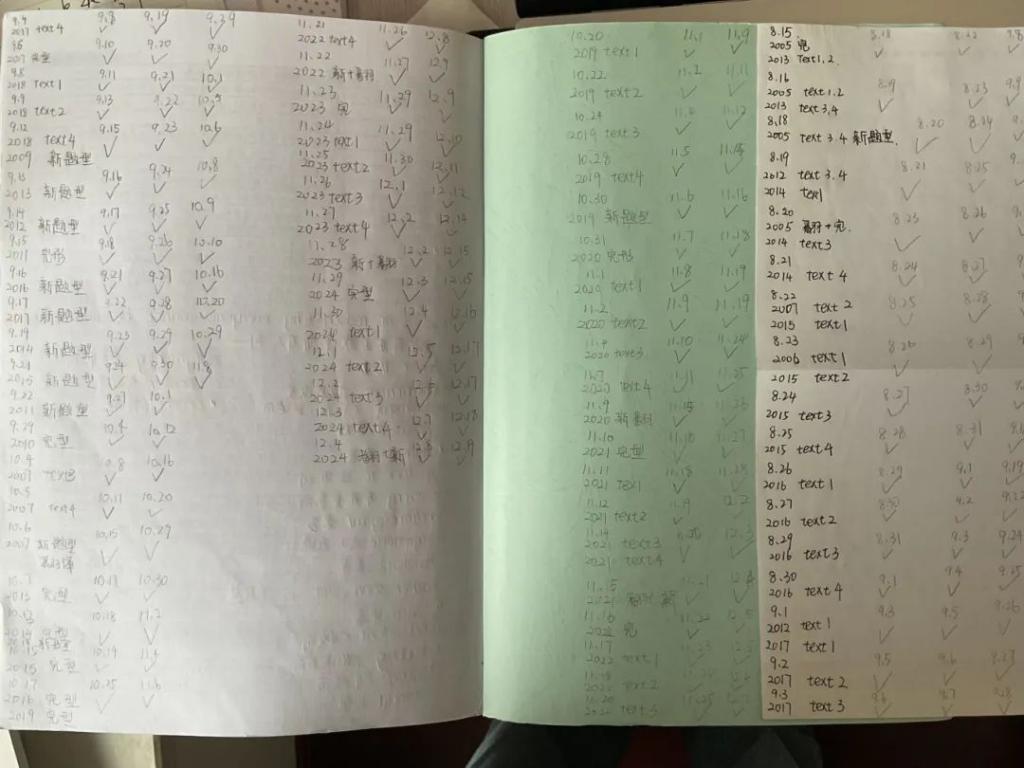 9.4 9.8 9.19 9.29
2017 text4 ✓ ✓ ✓
9.10 9.20 9.30
2017 完型 ✓ ✓ ✓
9.8 9.11 9.21 10.1
2018 text1 ✓ ✓ ✓
9.9 9.13 9.22
2018 text2 ✓ ✓ ✓
9.12 9.15 9.23 10.6
2018 text4 ✓ ✓ ✓
2009 新题型
9.16 9.24 10.8
2013 新题型 ✓ ✓ ✓
9.14 9.17 9.25 10.9
2012 新题型 ✓ ✓ ✓
9.15 9.18 9.26 10.10
2011 完形 ✓ ✓ ✓
9.16 9.21 9.27 10.16
2016 新题型 ✓ ✓ ✓
9.17 9.22 9.28
2017 新题型 ✓ ✓ ✓
9.19 9.23 9.29 10.29
2014 新题型 ✓ ✓ ✓
9.21 9.24 9.30 11.8
2015 新题型 ✓ ✓ ✓
9.22 9.27 10.1
2011 新题型 ✓ ✓
9.29 10.4 10.12
2010 完型 ✓ ✓
10.4 10.8 10.16
2007
10.5 10.11 10.20
2007 text4 ✓ ✓
10.6 10.15 10.29
2007 新题型 ✓ ✓
10.7 10.17 10.30
2013 完型 ✓ ✓
10.18 11.2
✓ ✓
10.19 11.4
2015 完型 ✓ ✓
10.17 10.25 11.6
2016 完型 ✓ ✓
2019 完型
11.21 11.26 12.8
2022 text4 ✓ ✓
11.22 11.27 12.9
2022 新+翻 ✓ ✓
11.23 11.29 12.9
2023 完 ✓ ✓
11.24 11.29 12.10
2023 text1 ✓ ✓
11.25 11.30 12.11
2023 text2 ✓ ✓
11.26 12.1 12.12
2023 text3 ✓ ✓
11.27 12.2 12.14
2023 text4 ✓ ✓
11.28 12.2 12.15
2023 新+翻 ✓ ✓
11.29 12.3 12.15
2024 完型 ✓ ✓
11.30 12.4 12.16
2024 text1 ✓ ✓
12.1 12.5 12.17
2024 text2 ✓ ✓
12.2 12.6 12.17
2024 text3 ✓ ✓
12.3 12.7 12.18
2024 text4 ✓ ✓
12.4
2024 翻+新 ✓ ✓
10.20 11.1 11.9
2019 text1 ✓ ✓
10.22 11.2 11.11
2019 text2 ✓ ✓
10.24 11.12
2019 text3 ✓ ✓
10.28 11.5 11.15
2019 text4 ✓ ✓
10.30 11.6 11.16
2019 新题型 ✓ ✓
10.31 11.7 11.18
2020 完形 ✓ ✓
11.1 11.8 11.19
2020 text1 ✓ ✓
11.2 11.9 11.19
2020 text2 ✓ ✓
11.4 11.10 11.24
2020 text3 ✓ ✓
11.7 11.11 11.25
2020 text4 ✓ ✓
11.9 11.15 11.26
2020 新 翻 ✓ ✓
11.10 11.18 11.27
2021 完型 ✓ ✓
11.11 11.18 11.28
2021 text1 ✓ ✓
11.12 11.19 12.2
2021 text2 ✓ ✓
11.14 12.3
2021 text3 ✓ ✓
2021 text4
11.15 11.21 12.4
2021 翻 新 ✓ ✓
11.16 11.22 12.5
2022 完 ✓ ✓
11.17 11.23
2022 text1 ✓ ✓
2022 text2 ✓ ✓
11.20 11.25
2022 text3 ✓ ✓
8.15 8.18 8.22 9.8
2005 完 ✓ ✓
2013 text1.2
8.16 8.19 8.23 9.9
2005 text1.2 ✓ ✓
2013 text3.4
8.18 8.20 8.24
2005 text 3.4 新题型. ✓ ✓
8.19 8.21 8.25
2012 text 3.4 ✓ ✓
2014 text1
8.20 8.23 8.26
2005 翻+完. ✓ ✓
2014 text3
8.21 8.24 8.27
2014 text 4 ✓ ✓
8.22 8.25 8.28
2007 text 2 ✓ ✓
2015 text1
8.23 8.26 8.29
2006 text1 ✓ ✓
2015 text2
8.24 8.27 8.30
2015 text3 ✓ ✓
8.25 8.28 8.31
2015 text4 ✓ ✓
8.26 8.29 9.1 9.19
2016 text1 ✓ ✓ ✓
8.27 8.30 9.2 9.22
2016 text2 ✓ ✓ ✓
8.29 8.31 9.3 9.24
2016 text3 ✓ ✓ ✓
8.30 9.1 9.4 9.25
2016 text4 ✓ ✓ ✓
9.1 9.3 9.5 9.26
2012 text1 ✓ ✓ ✓
2017 text1
9.2 9.5 9.6 9.27
2017 text2 ✓ ✓ ✓
9.3 9.6 9.7 9.28
2017 text3 ✓ ✓ ✓